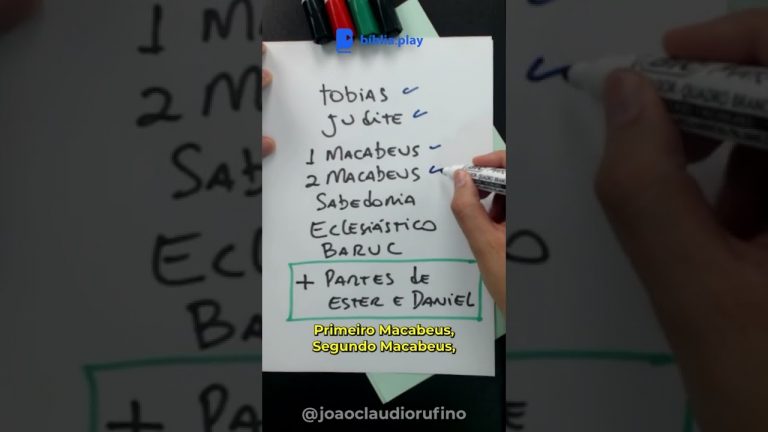 biblia.play
TOBIAS
JUDITE
1 MACABEUS
2 MACABEUS
SABEDORIA
ECLESIÁSTICO
BARUC
+ PARTES DE
ESTER E DANIEL
Primeiro Macabeus,
Segundo Macabeus,
@joaoclaudiorufino